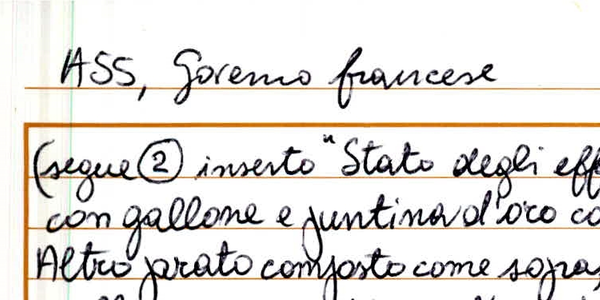 ASS, Governo francese
(segue ② inserto "Stato degli eff
con gallone e puntina d'oro co
Altro parato composto come sopra